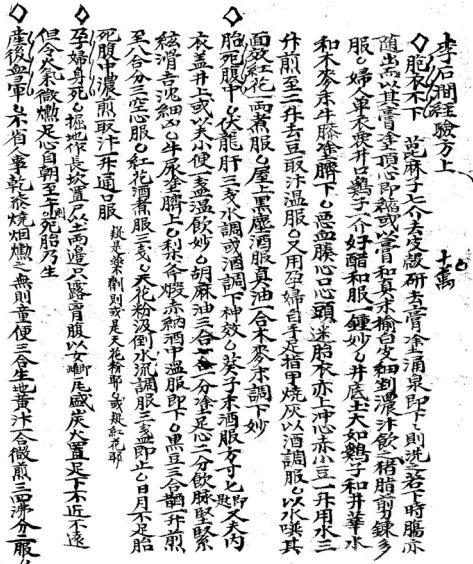 李石澗經驗方上
胞衣不下 萆麻子七介去皮殼研去膏塗涌泉即下下則洗之若下時腸亦
隨出而以其膏塗頂心即縮或以膏和真末榆白皮細剉濃汁飲之猪脂剪鍊多
服婦人單衣挾井口鷄子一介好醋和服一鍾妙井底土大如鷄子和井華水
和木麥末牛膝塗臍下惡血腠心口心頭迷胎衣亦上冲心赤小豆一升用水三
升煎至二升去豆取汁溫服又用孕婦自手足指甲燒灰以酒調服以水噀其
面效紅花一兩煮服屋上黑塵酒服真油一合木麥末調下妙
胎死腹中 伏龍肝三戔水調或酒調下神效葵子末酒服方寸匕即 又夫內
衣盖井上或以夫小便一盞溫飲妙胡麻油三合 分塗足心二分飲脉堅緊
絃滑者沈細 牛屎塗臍上梨 斧煅赤納酒中溫服即下黑豆三合醋一升煎
至八合分三空心服紅花酒煮服三戔天花粉汲倒水流調服三盞即止日月不足胎
死腹中濃煎取汁一升通口服 疑是藥水劑則或是天花粉耶或疑紅花耶
孕婦身死 掘地作長坎置尸以土兩邊只露膏腹以女 尾盛炭火置足下不近不遠
但令火氣微爛足心自朝至午則死胎乃生
產後血軍 不省人事乾漆燒烟燻之無則童便三合生地黃汁一合微煎三四沸分二服